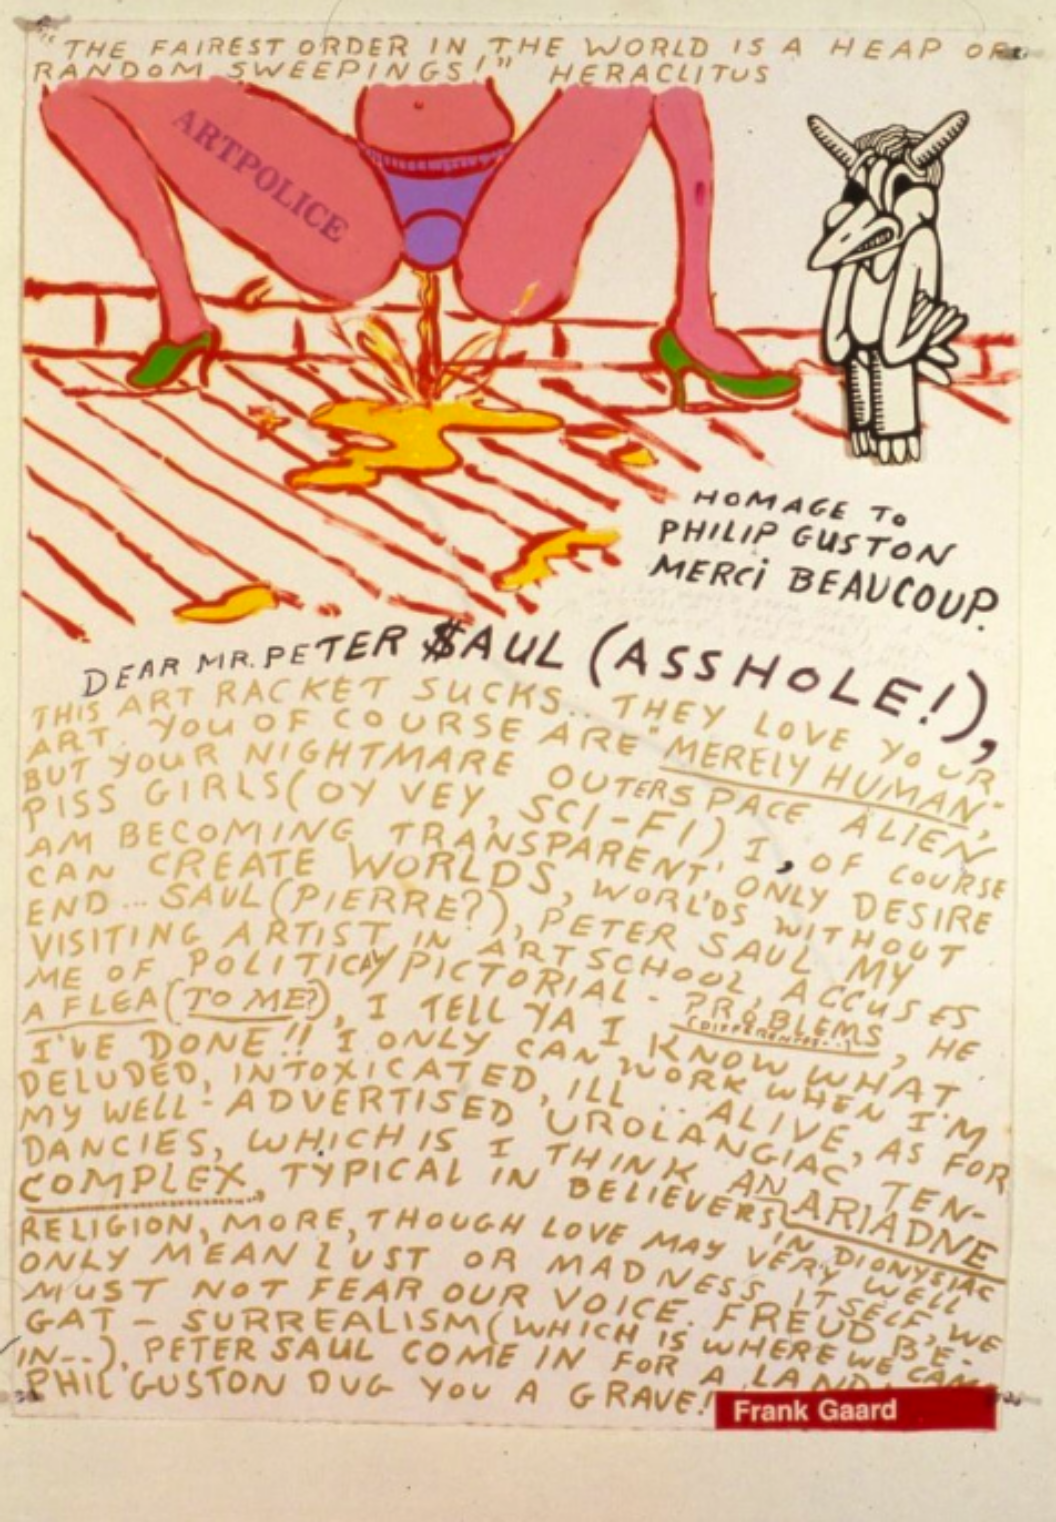 "THE FAIREST ORDER IN THE WORLD IS A HEAP OF
RANDOM SWEEPINGS!" HERACLITUS
ARTPOLICE
HOMAGE TO
PHILIP GUSTON
MERCI BEAUCOUP.
DEAR MR. PETER $AUL (ASSHOLE!),
THIS ART RACKET SUCKS.. THEY LOVE YOUR
ART. YOU OF COURSE ARE "MERELY HUMAN",
BUT YOUR NIGHTMARE OUTERSPACE ALIEN
PISS GIRLS (OY VEY, SCI-FI) I, OF COURSE
AM BECOMING TRANSPARENT, ONLY DESIRE
CAN CREATE WORLDS, WORLDS WITHOUT
END... SAUL (PIERRE?), PETER SAUL MY
VISITING ARTIST IN ART SCHOOL ACCUSES
ME OF POLITICAL/PICTORIAL- PROBLEMS, HE
A FLEA (TO ME?), I TELL YA I KNOW WHAT
I'VE DONE!! I ONLY CAN WORK WHEN I'M
DELUDED, INTOXICATED, ILL .. ALIVE, AS FOR
MY WELL-ADVERTISED UROLANGIAC TEN-
DANCIES, WHICH IS I THINK AN ARIADNE
COMPLEX, TYPICAL IN BELIEVERS IN DIONYSIAC
RELIGION, MORE, THOUGH LOVE MAY VERY WELL
ONLY MEAN LUST OR MADNESS ITSELF, WE
MUST NOT FEAR OUR VOICE. FREUD BE-
GAT - SURREALISM (WHICH IS WHERE WE CAME
IN--), PETER SAUL COME IN FOR A
PHIL GUSTON DUG YOU A GRAVE!
Frank Gaard